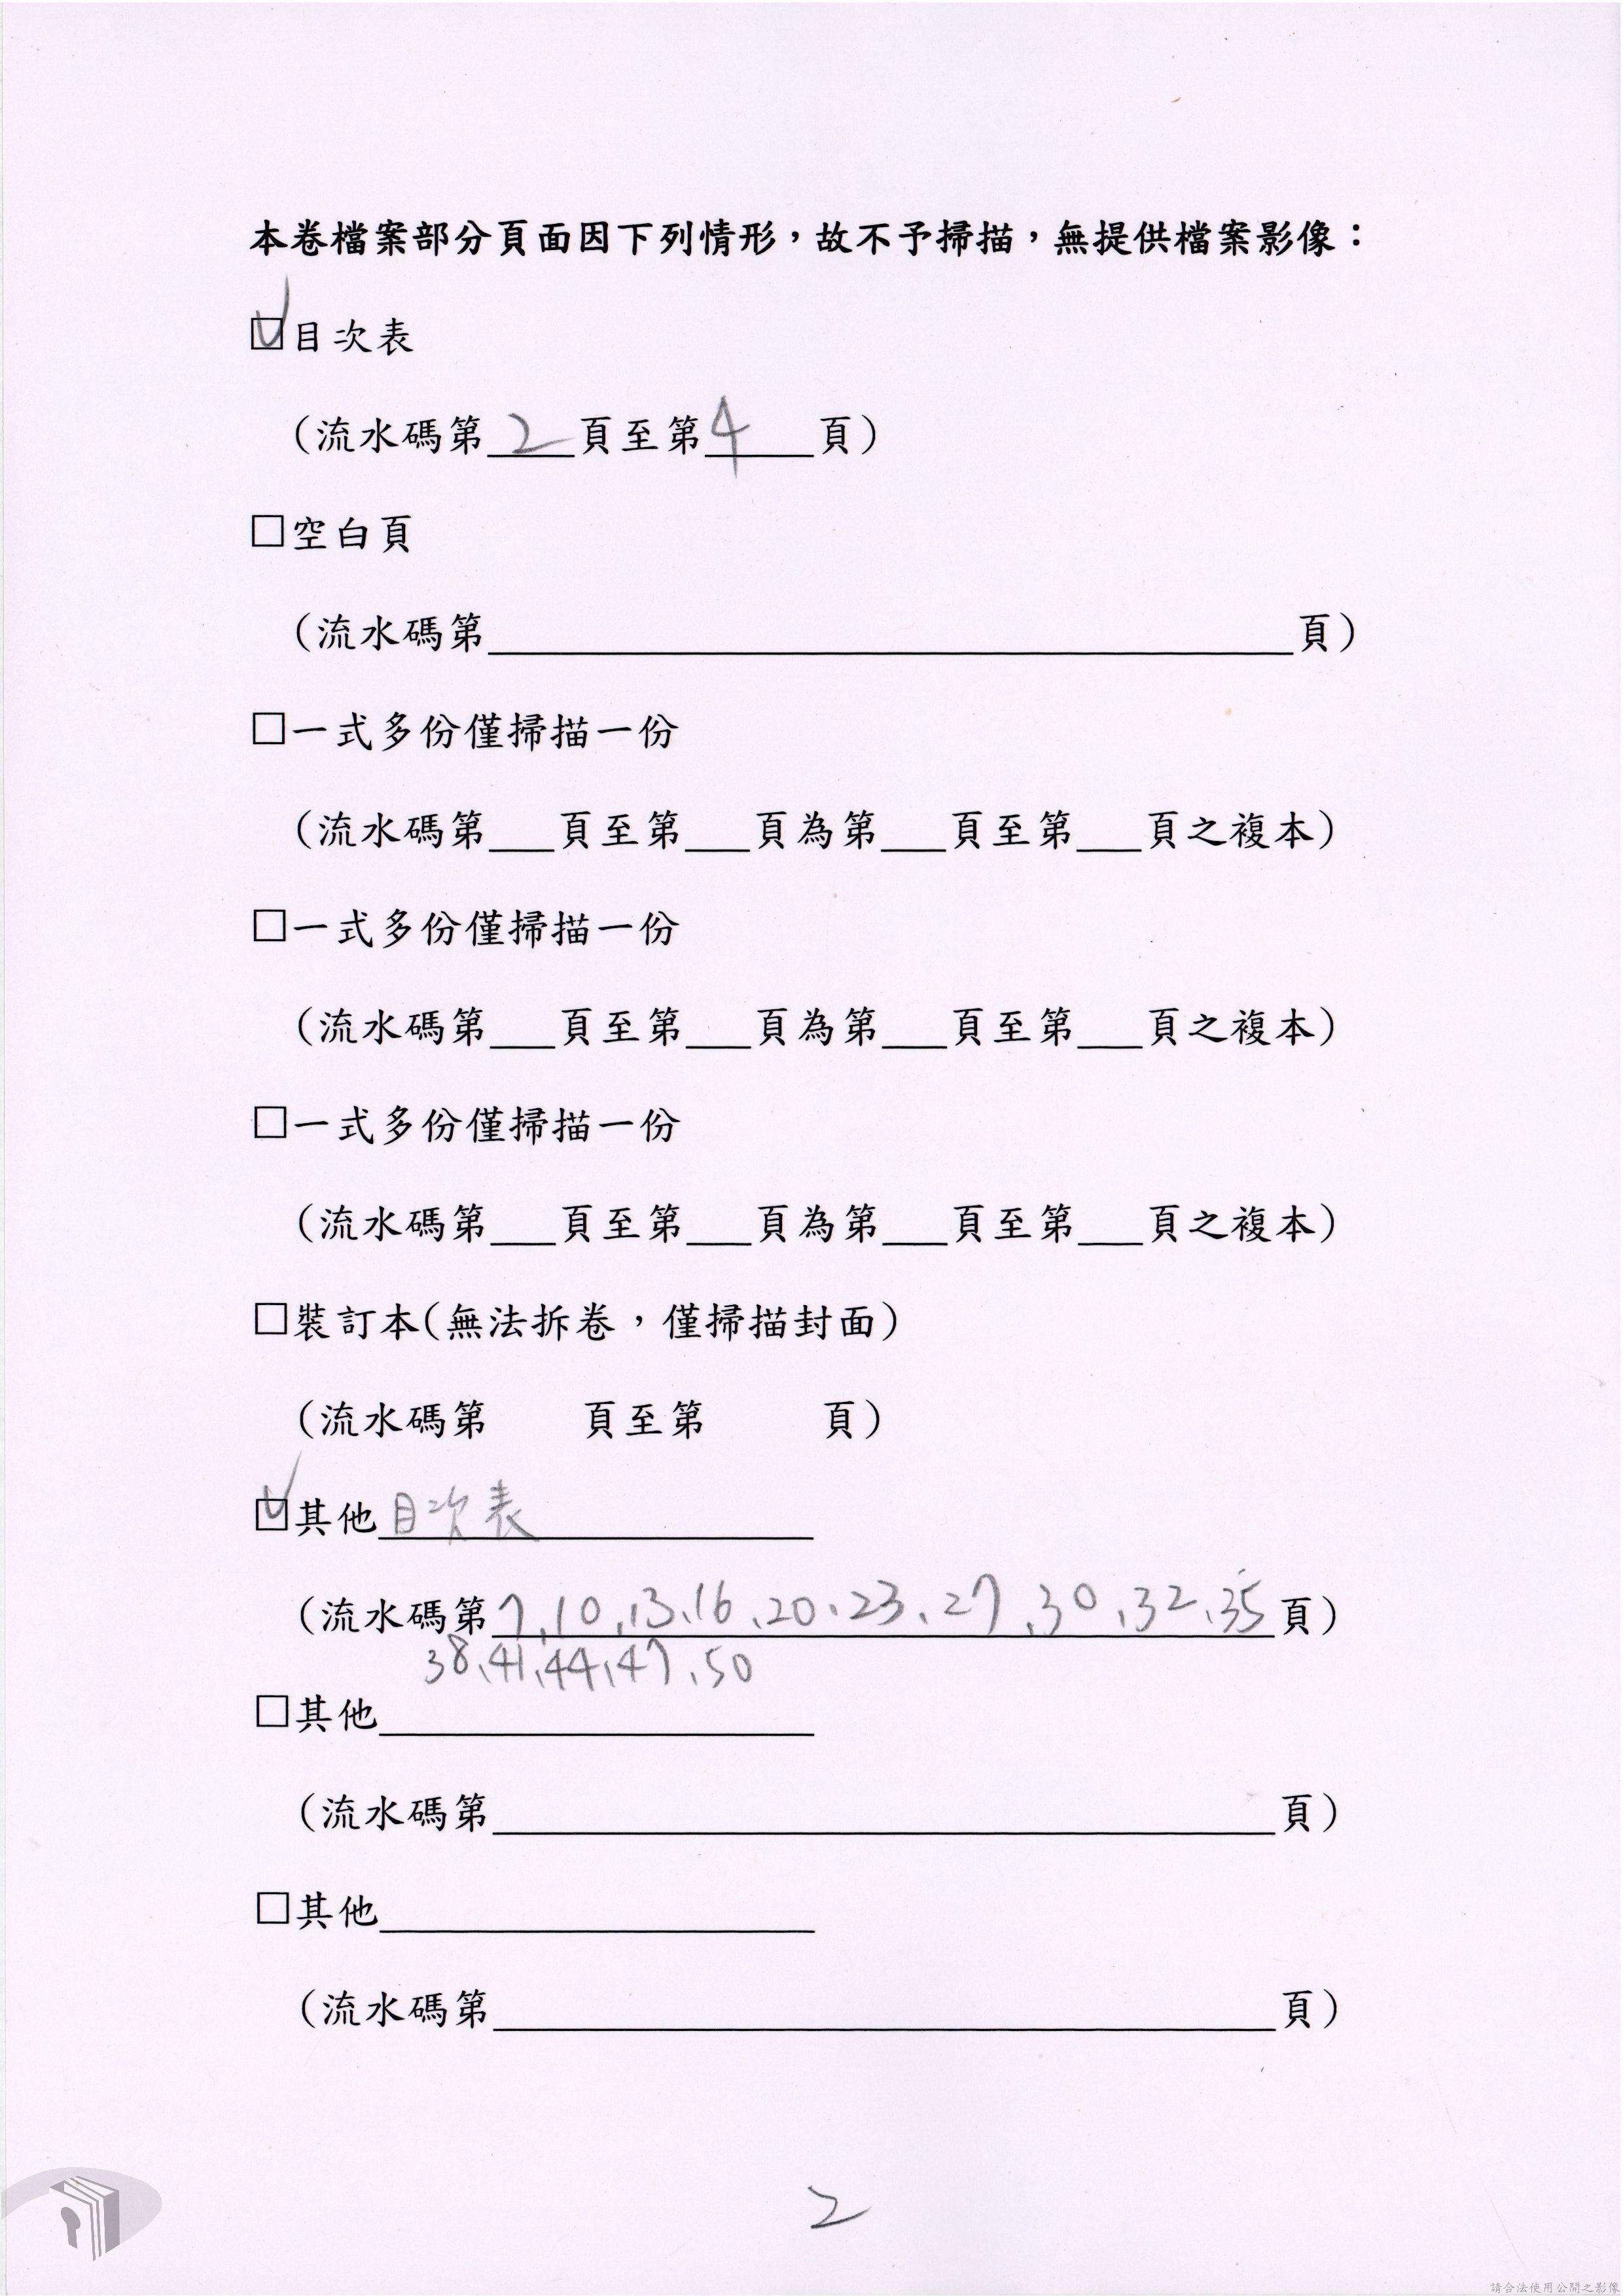 本卷檔案部分頁面因下列情形，故不予掃描，無提供檔案影像：
☑目次表
（流水碼第2頁至第4頁）
□空白頁
（流水碼第＿＿＿＿頁）
□一式多份僅掃描一份
（流水碼第＿頁至第＿頁為第＿頁至第＿頁之複本）
□一式多份僅掃描一份
（流水碼第＿頁至第＿頁為第＿頁至第＿頁之複本）
□一式多份僅掃描一份
（流水碼第＿頁至第＿頁為第＿頁至第＿頁之複本）
□裝訂本(無法拆卷，僅掃描封面)
（流水碼第　　頁至第　　頁）
☑其他目次表
（流水碼第7、10、13、16、20、23、27、30、32、35頁）
38、41、44、47、50
□其他＿＿＿＿
（流水碼第＿＿＿＿頁）
□其他＿＿＿＿
（流水碼第＿＿＿＿頁）
2
請合法使用公開之影像